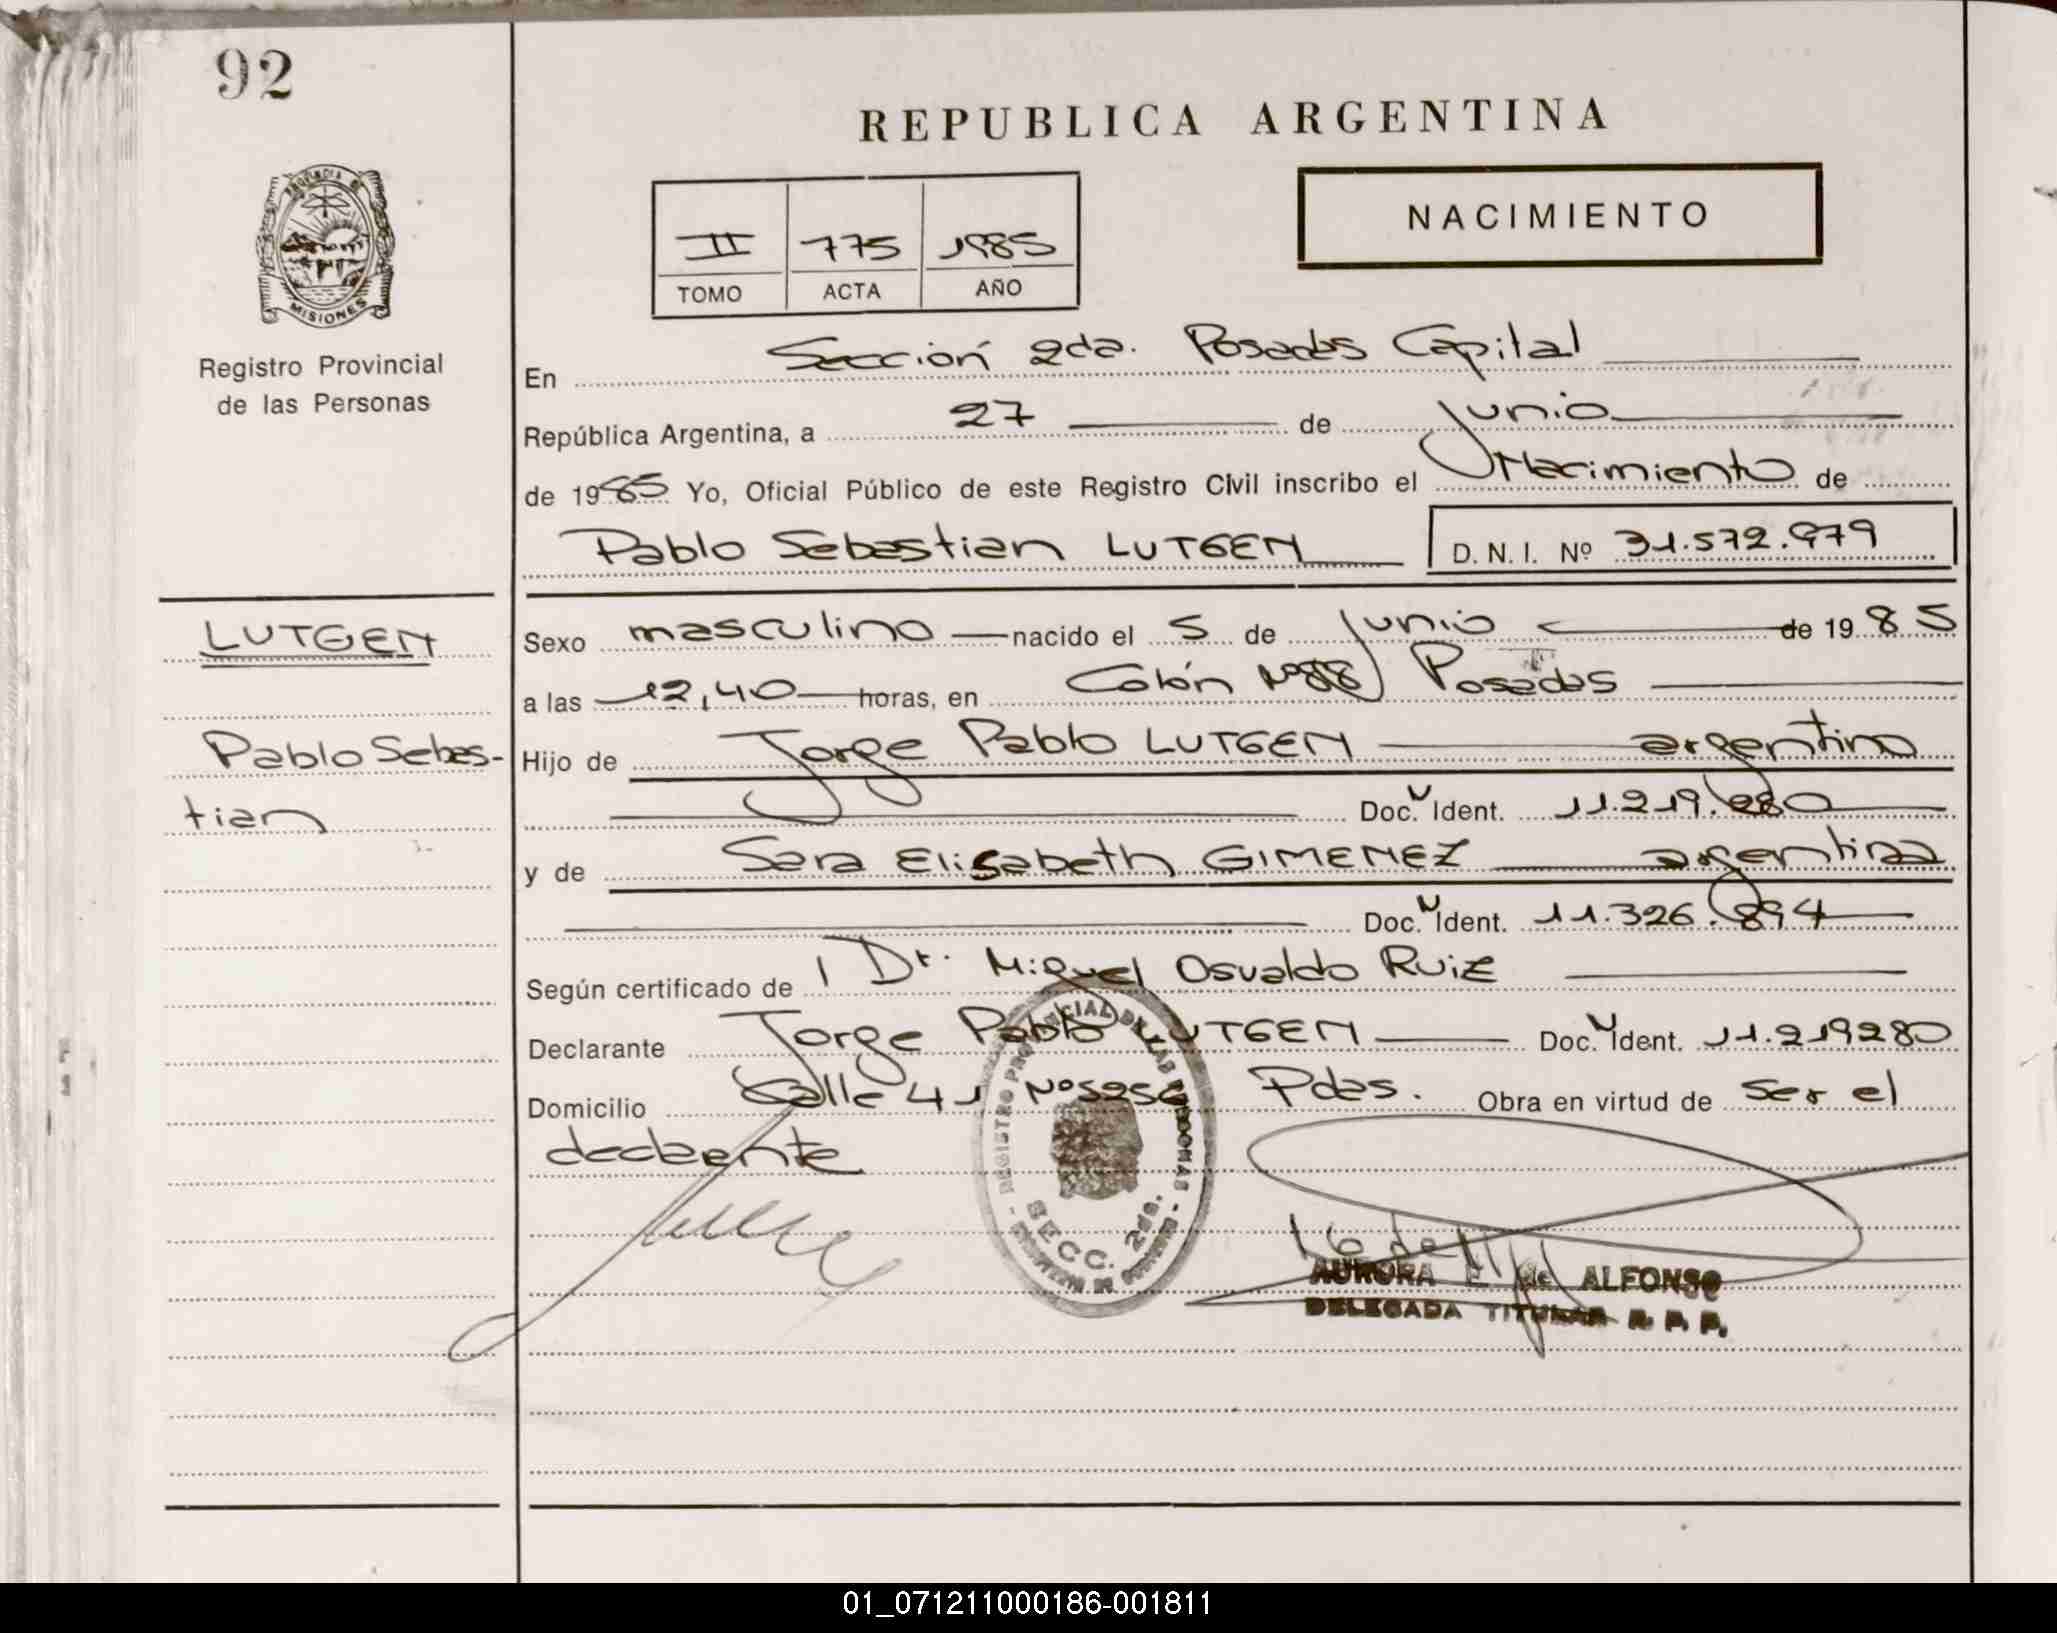 92
REPUBLICA ARGENTINA
PROVINCIA DE
MISIONES
Registro Provincial
de las Personas
II 775 1985
TOMO ACTA AÑO
NACIMIENTO
En Sección 2da. Posadas Capital
República Argentina, a 27 de Junio
de 1985 Yo, Oficial Público de este Registro Civil inscribo el Nacimiento de
Pablo Sebastian LUTGEN D. N. I. Nº 31.572.979
LUTGEN
Pablo Sebas-
tian
Sexo masculino nacido el 5 de Junio de 1985
a las 12,40 horas, en Colón Nº 88 Posadas
Hijo de Jorge Pablo LUTGEN argentino
Doc. Ident. 11.219.280
y de Sara Elisabeth GIMENEZ argentina
Doc. Ident. 11.326.894
Según certificado de Dr. Miguel Osvaldo Ruiz
Declarante Jorge Pablo LUTGEN Doc. Ident. 11.219280
Domicilio Calle 41 Pdas. Obra en virtud de ser el
declarante
REGISTRO PROVINCIAL DE LAS PERSONAS
SECC. 2da.
AURORA de ALFONSO
DELEGADA TITULAR R. P. P.
01_071211000186-001811